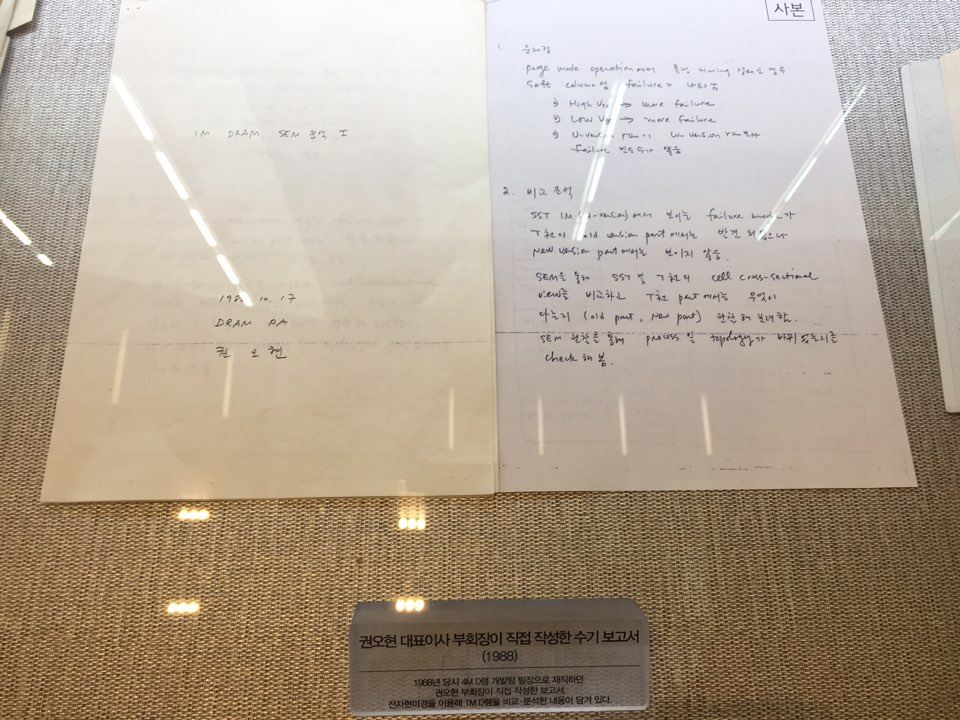 1M DRAM SEM 분석 I
1988. 10. 17
DRAM PA
권 오 현
사본
1. 문제점
page mode operation에서 특정 timing 상태인 경우
soft column성 failure가 나타남
1) High Vcc → more failure
2) Low → more failure
failure 빈도수가 많음
2. 비교 분석
SST 1M 에서 보이는 failure mode가
T社의 old version part에서는 발견 되었으나
New version part에서는 보이지 않음.
SEM을 통해 SST 및 T社의 cell cross-sectional
view를 비교하고 T社 part에서는 무엇이
다른지 (old part, New part) 관찰해 보려함.
SEM 관찰을 통해 process 및 topology가 바뀌었는지를
check 해 봄.
권오현 대표이사 부회장이 직접 작성한 수기 보고서
(1988)
1988년 당시 4M D램 개발팀 팀장으로 재직하던
권오현 부회장이 직접 작성한 보고서.
전자현미경을 이용해 1M D램을 비교·분석한 내용이 담겨 있다.